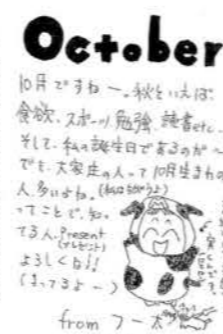 October
10月ですねー。秋といえば
食欲、スポーツ、勉強、読書etc.
そして、私の誕生日であるのだ〜
でも、大家庄の人って10月生まれの
人、多いよね。(私はちがうよ)
ってことで、知っ
てる人、Present
(プレゼント)
よろしくね!!
(まってるよ〜)
from フー太